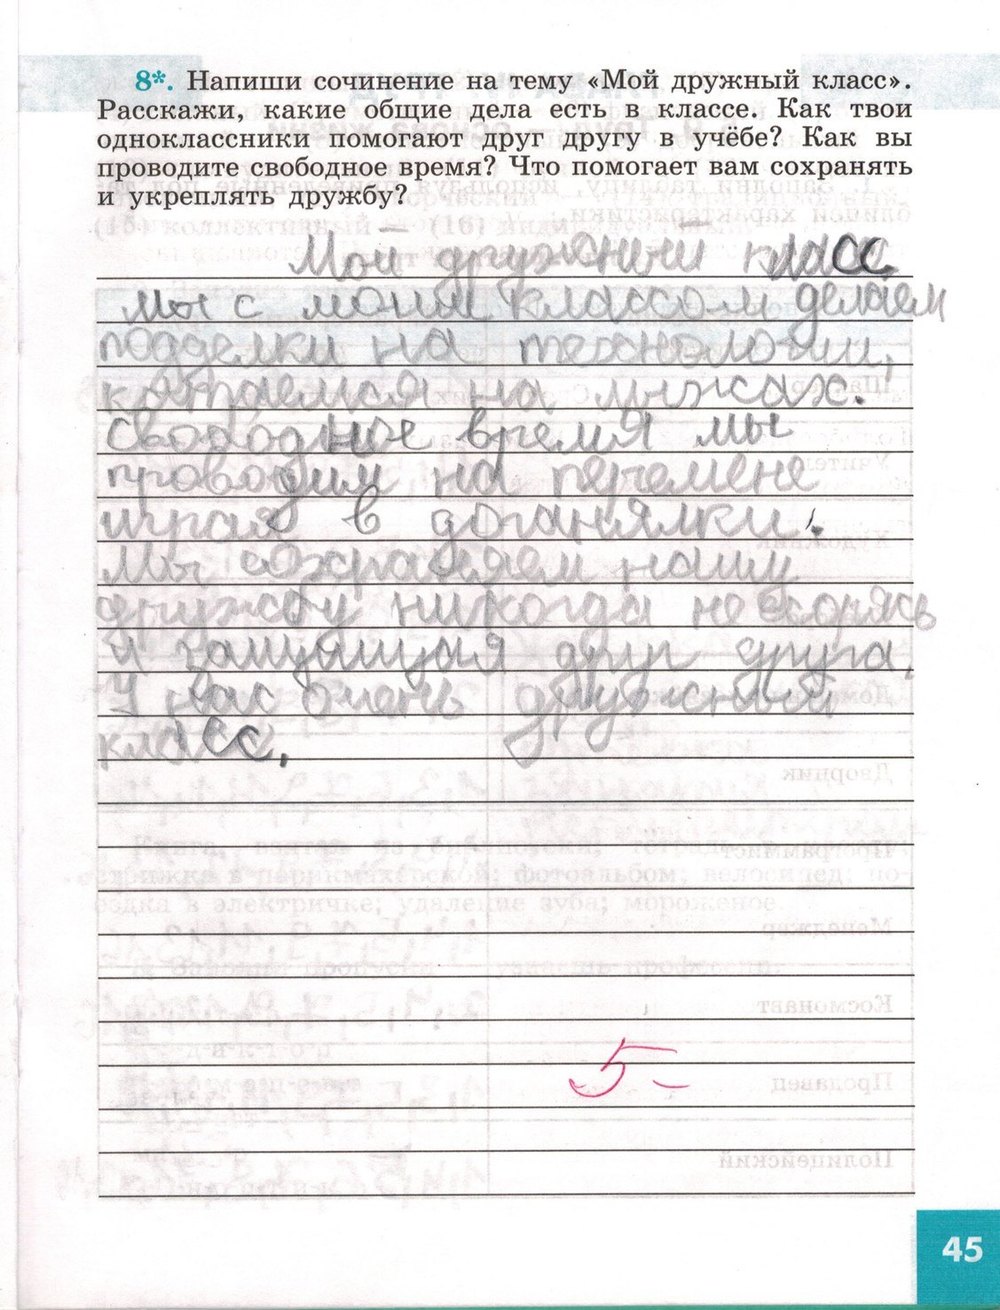 8*. Напиши сочинение на тему «Мой дружный класс».
Расскажи, какие общие дела есть в классе. Как твои
одноклассники помогают друг другу в учёбе? Как вы
проводите свободное время? Что помогает вам сохранять
и укреплять дружбу?
Мой дружный класс
мы с моим классом делаем
подделки на технологии,
катаемся на лыжах.
Свободное время мы
проводим на перемене
играя в доганялки.
Мы сохраняем нашу
дружбу никогда не сорясь
и защищая друг друга.
У нас очень дружный
класс.
5-
45